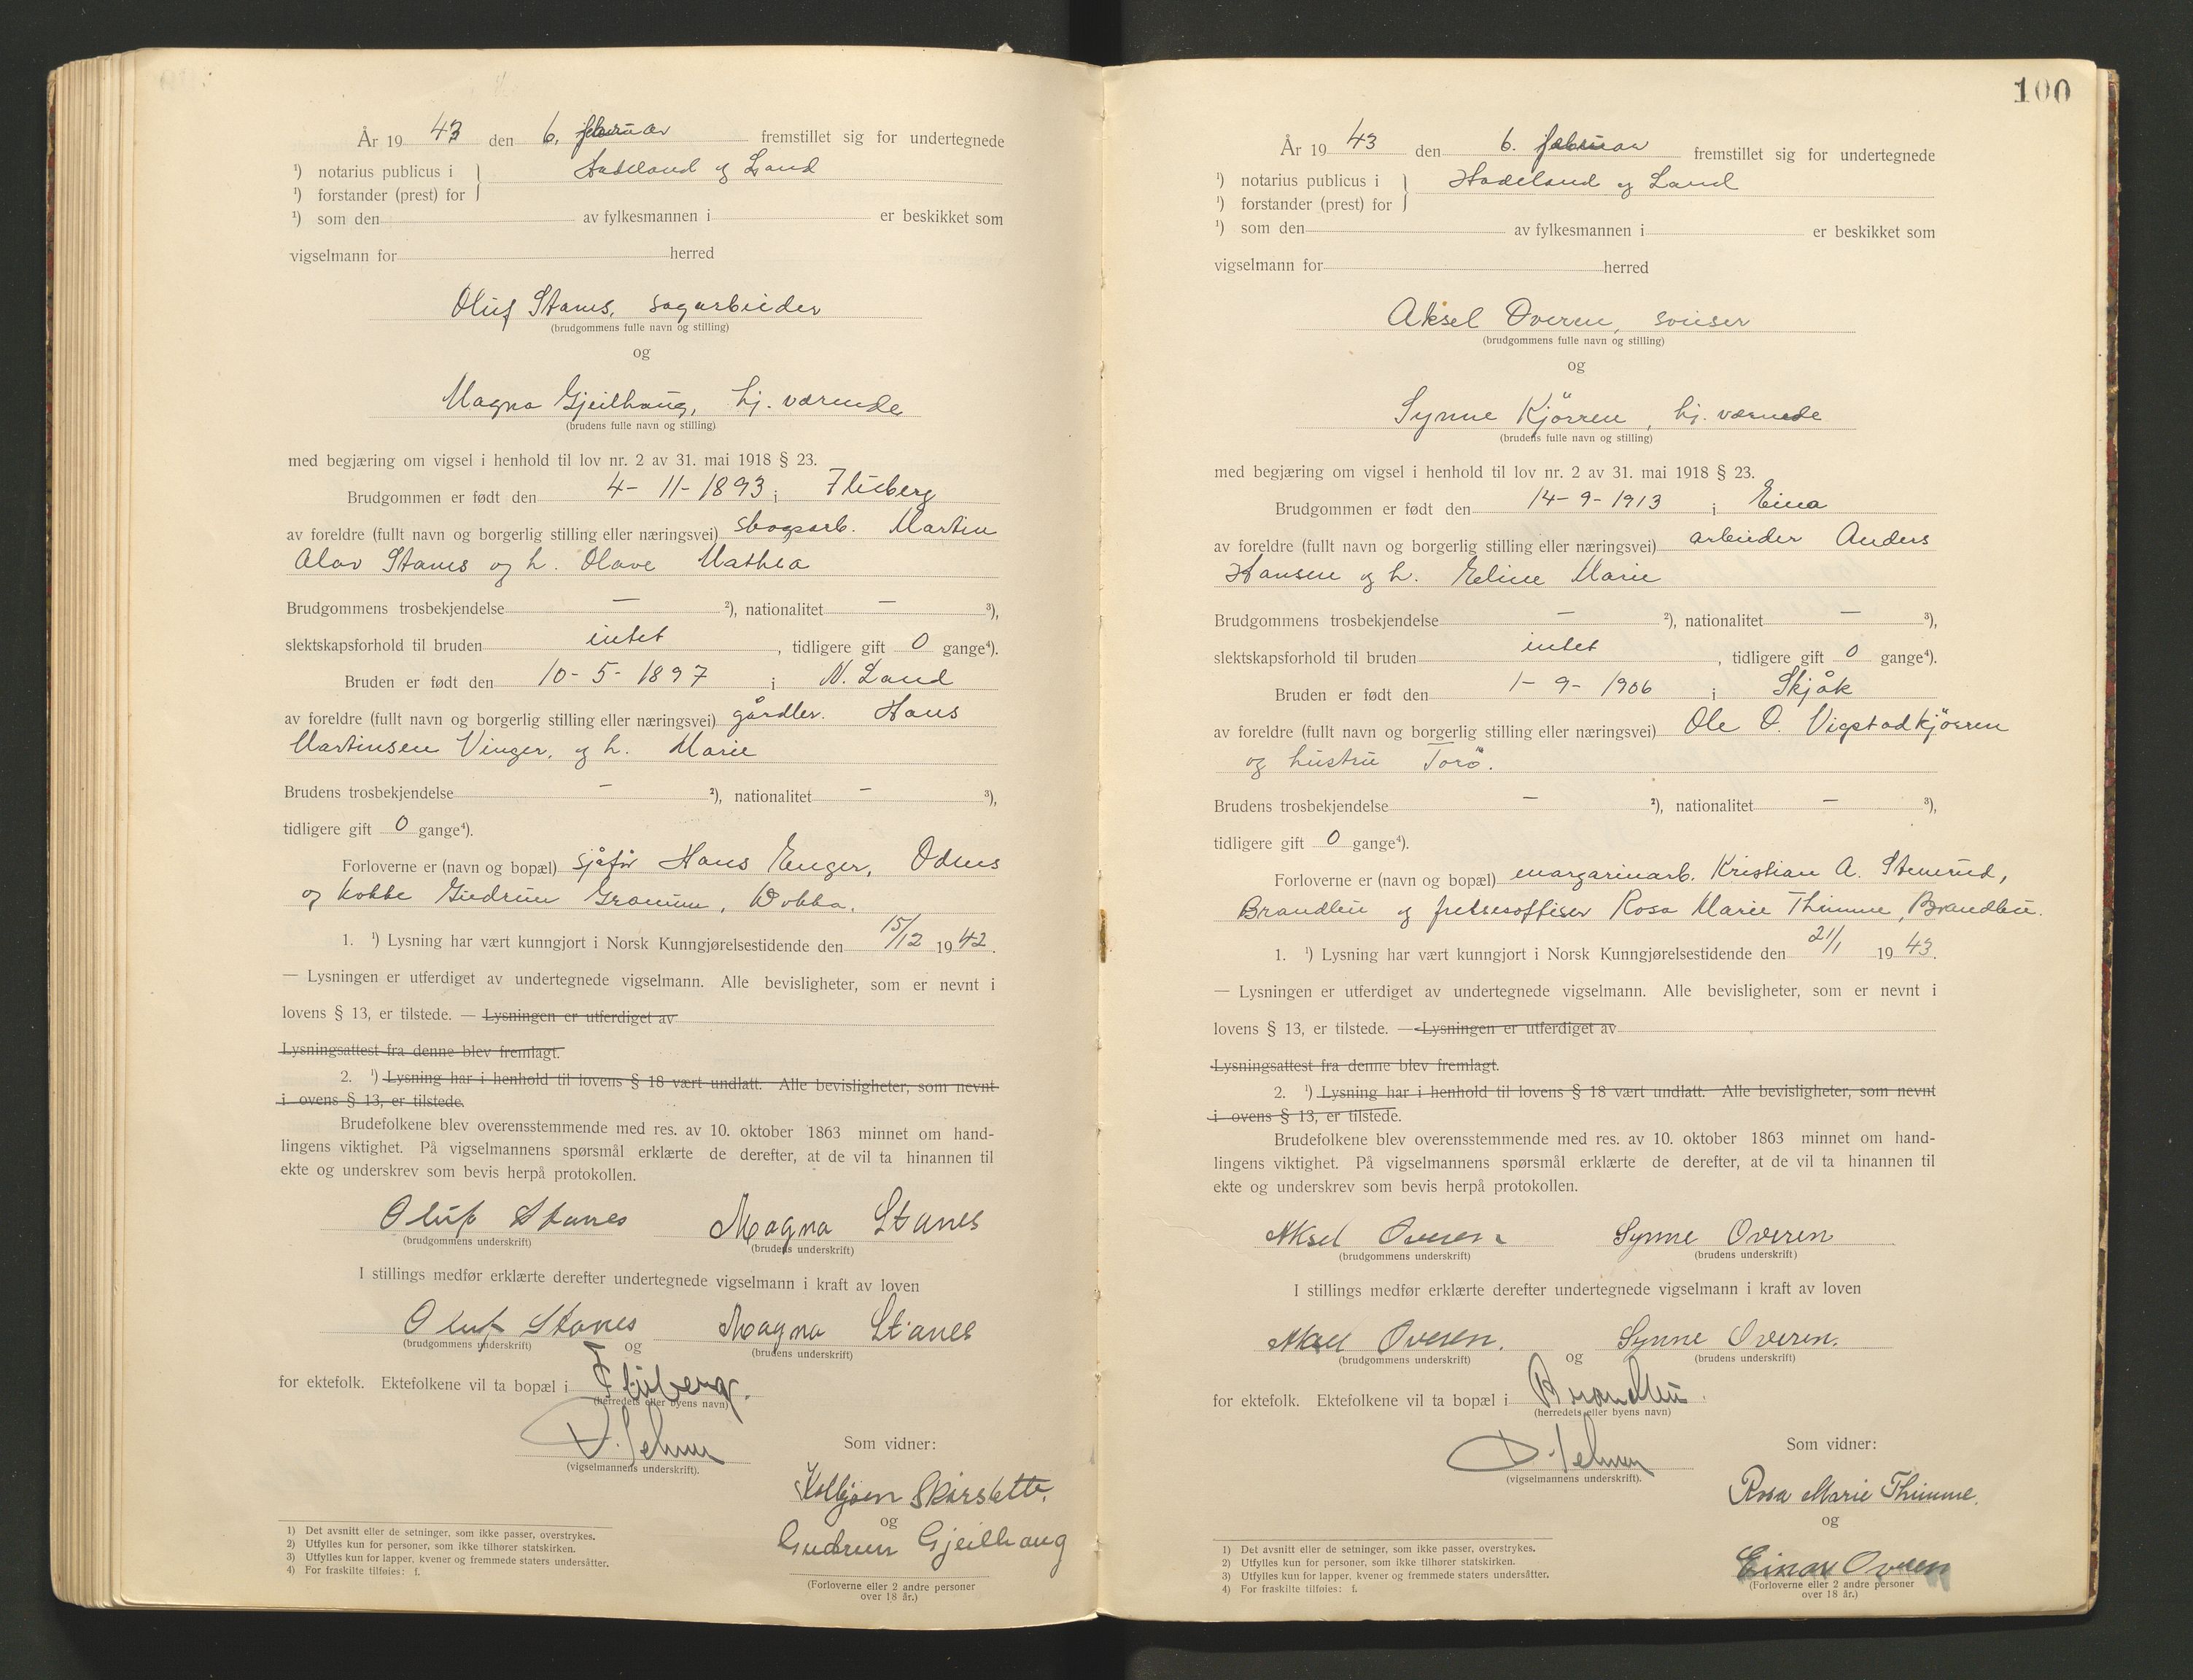 År 19 43 den 6. februar fremstillet sig for undertegnede
¹) notarius publicus i } Hadeland og Land
¹) forstander (prest) for
¹) som den av fylkesmannen i er beskikket som
vigselmann for herred
Oluf Stanes, sagarbeider
(brudgommens fulle navn og stilling)
og
Magna Gjeilhaug, hj. værende
(brudens fulle navn og stilling)
med begjæring om vigsel i henhold til lov nr. 2 av 31. mai 1918 § 23.
Brudgommen er født den 4- 11- 1893 i Fluberg
av foreldre (fullt navn og borgerlig stilling eller næringsvei) skogsarb. Martin
Alav Stanes og h. Olave Mathea
Brudgommens trosbekjendelse — ²), nationalitet — ³),
slektskapsforhold til bruden intet , tidligere gift 0 gange⁴).
Bruden er født den 10- 5- 1897 i N. Land
av foreldre (fullt navn og borgerlig stilling eller næringsvei) gårdbr. Hans
Martinsen Vinger, og h. Marie
Brudens trosbekjendelse — ²), nationalitet — ³),
tidligere gift 0 gange⁴).
Forloverne er (navn og bopæl) sjåfør Hans Enger, Odnes
og kokke Gudrun Granum, Dokka.
1. ¹) Lysning har vært kunngjort i Norsk Kunngjørelsestidende den 15/12 19 42.
— Lysningen er utferdiget av undertegnede vigselmann. Alle bevisligheter, som er nevnt i
lovens § 13, er tilstede. — Lysningen er utferdiget av
Lysningsattest fra denne blev fremlagt.
2. ¹) Lysning har i henhold til lovens § 18 vært undlatt. Alle bevisligheter, som nevnt
i ovens § 13, er tilstede.
Brudefolkene blev overensstemmende med res. av 10. oktober 1863 minnet om hand-
lingens viktighet. På vigselmannens spørsmål erklærte de derefter, at de vil ta hinannen til
ekte og underskrev som bevis herpå protokollen.
Oluf Stanes Magna Stanes
(brudgommens underskrift) (brudens underskrift)
I stillings medfør erklærte derefter undertegnede vigselmann i kraft av loven
Oluf Stanes Magna Stanes
(brudgommens underskrift) og (brudens underskrift)
for ektefolk. Ektefolkene vil ta bopæl i Fluberg.
(herredets eller byens navn)
(vigselmannens underskrift).
Som vidner:
Kolbjørn
og
Gudrun Gjeilhaug
(Forloverne eller 2 andre personer
over 18 år.)
1) Det avsnitt eller de setninger, som ikke passer, overstrykes.
2) Utfylles kun for personer, som ikke tilhører statskirken.
3) Utfylles kun for lapper, kvener og fremmede staters undersåtter.
4) For fraskilte tilføies: f.
100
År 19 43 den 6. februar fremstillet sig for undertegnede
¹) notarius publicus i } Hadeland og Land
¹) forstander (prest) for
¹) som den av fylkesmannen i er beskikket som
vigselmann for herred
Aksel Overen, sveiser
(brudgommens fulle navn og stilling)
og
Synne Kjörren, hj. værnede
(brudens fulle navn og stilling)
med begjæring om vigsel i henhold til lov nr. 2 av 31. mai 1918 § 23.
Brudgommen er født den 14- 9- 1913 i Eina
av foreldre (fullt navn og borgerlig stilling eller næringsvei) arbeider Anders
Hansen og h. Eline Marie
Brudgommens trosbekjendelse — ²), nationalitet — ³),
slektskapsforhold til bruden intet , tidligere gift 0 gange⁴).
Bruden er født den 1- 9- 1906 i Skjåk
av foreldre (fullt navn og borgerlig stilling eller næringsvei) Ole O. Vigstadkjörren
og hustru Torö.
Brudens trosbekjendelse — ²), nationalitet — ³),
tidligere gift 0 gange⁴).
Forloverne er (navn og bopæl) margarinarb. Kristian A. Stenrud,
Brandbu og frelsesoffiser Rosa Marie Thimme, Brandbu.
1. ¹) Lysning har vært kunngjort i Norsk Kunngjørelsestidende den 21/1 19 43.
— Lysningen er utferdiget av undertegnede vigselmann. Alle bevisligheter, som er nevnt i
lovens § 13, er tilstede. — Lysningen er utferdiget av
Lysningsattest fra denne blev fremlagt.
2. ¹) Lysning har i henhold til lovens § 18 vært undlatt. Alle bevisligheter, som nevnt
i ovens § 13, er tilstede.
Brudefolkene blev overensstemmende med res. av 10. oktober 1863 minnet om hand-
lingens viktighet. På vigselmannens spørsmål erklærte de derefter, at de vil ta hinannen til
ekte og underskrev som bevis herpå protokollen.
Aksel Overen Synne Overen
(brudgommens underskrift) (brudens underskrift)
I stillings medfør erklærte derefter undertegnede vigselmann i kraft av loven
Aksel Overen. Synne Overen.
(brudgommens underskrift) og (brudens underskrift)
for ektefolk. Ektefolkene vil ta bopæl i Brandbu.
(herredets eller byens navn)
(vigselmannens underskrift).
Som vidner:
Rosa Marie Thimme.
og
Einar Overen
(Forloverne eller 2 andre personer
over 18 år.)
1) Det avsnitt eller de setninger, som ikke passer, overstrykes.
2) Utfylles kun for personer, som ikke tilhører statskirken.
3) Utfylles kun for lapper, kvener og fremmede staters undersåtter.
4) For fraskilte tilføies: f.